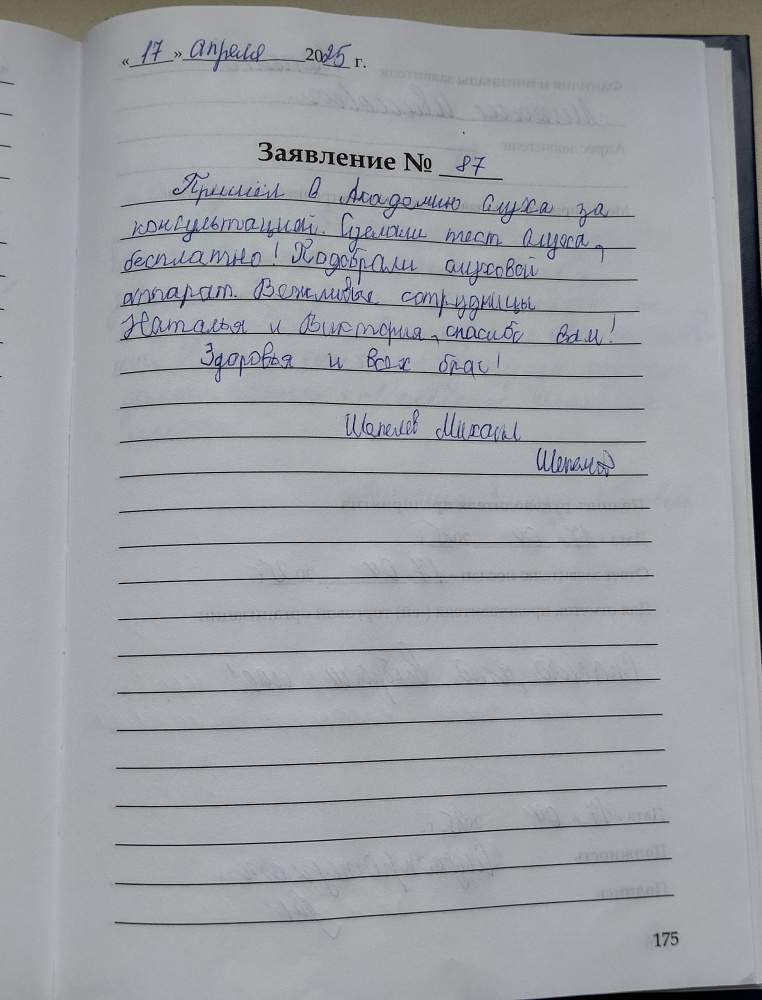 «17» апреля 2025 г.
Заявление № 87
Пришёл в Академию слуха за
консультацией. Сделали тест слуха,
бесплатно! Подобрали слуховой
аппарат. Вежливые сотрудницы
Наталья и Виктория, спасибо вам!
Здоровья и всех благ!
Шепелев Михаил
Шепелев
175